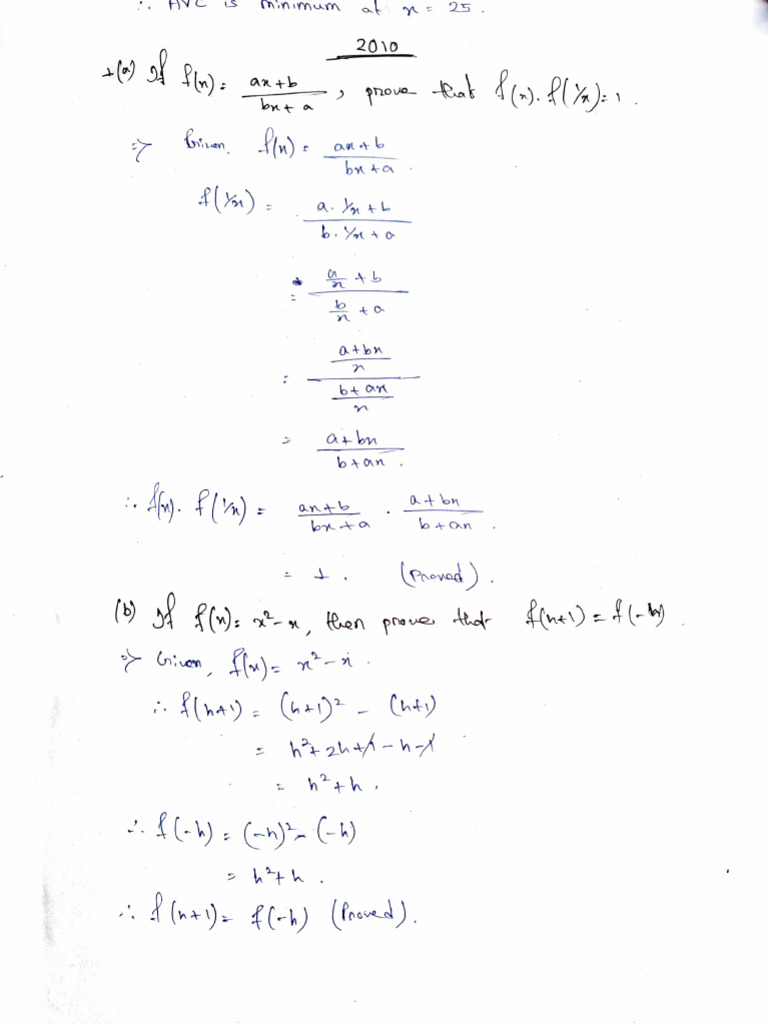 ∴ AVC is minimum at x = 25.
2010
1(a) If f(x) = (ax+b)/(bx+a), prove that f(x). f(1/x) = 1.
=> Given, f(x) = (ax+b)/(bx+a).
f(1/x) = (a. 1/x + b)/(b. 1/x + a)
= (a/x + b)/(b/x + a)
= ((a+bx)/x)/((b+ax)/x)
= (a+bx)/(b+ax).
∴ f(x). f(1/x) = (ax+b)/(bx+a) . (a+bx)/(b+ax).
= 1. (Proved).
(b) If f(x) = x²-x, then prove that f(h+1) = f(-h).
=> Given, f(x) = x²-x.
∴ f(h+1) = (h+1)² - (h+1)
= h²+2h+1-h-1
= h²+h.
∴ f(-h) = (-h)² - (-h)
= h²+h.
∴ f(h+1) = f(-h) (Proved).